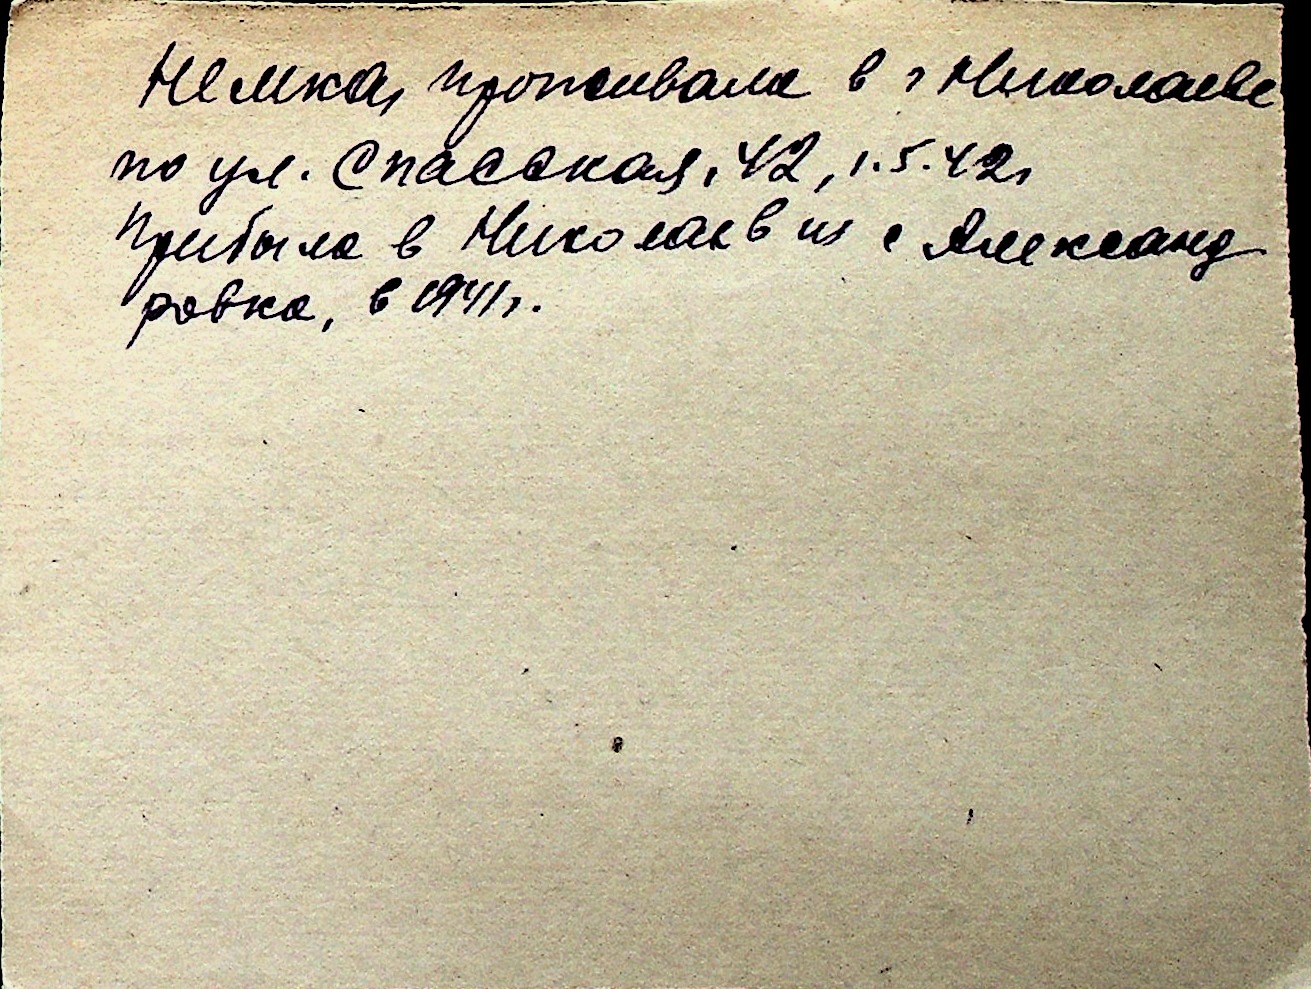 Немка, проживала в г Николаеве
по ул. Спасская, 42, 1.5.42г
Прибыла в Николаев из с Александ
ровка, в 1941г.